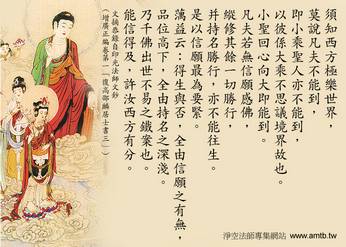 須知西方極樂世界，
莫說凡夫不能到，
即小乘聖人亦不能到，
以彼係大乘不思議境界故也。
小聖回心向大即能到。
凡夫若無信願感佛，
縱修其餘一切勝行，
並持名勝行，亦不能往生。
是以信願最為要緊。
蕅益云：得生與否，全由信願之有無，
品位高下，全由持名之深淺。
乃千佛出世不易之鐵案也。
能信得及，許汝西方有分。
文摘恭錄自印光法師文鈔
（增廣正編卷第一「復高邵麟居士書三」）
淨空法師專集網站 www.amtb.tw